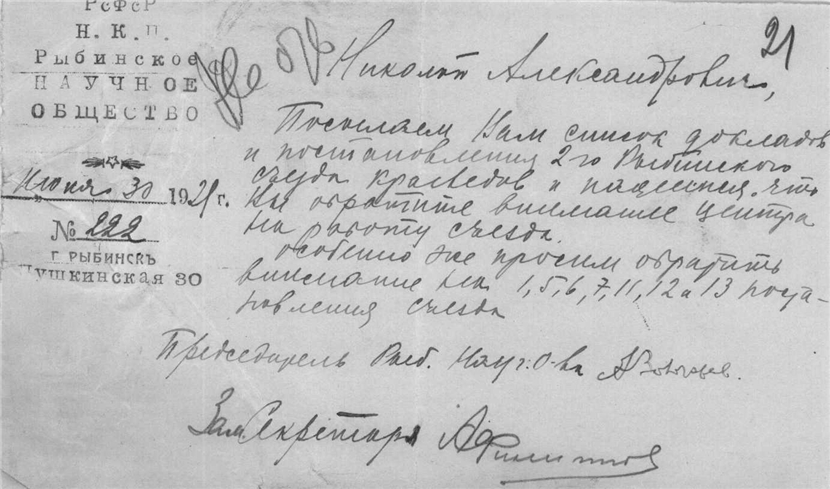 РСФСР
Н. К. П.
Рыбинское
НАУЧНОЕ
ОБЩЕСТВО
Июня 30 192 г.
№ 222
Г. РЫБИНСКЪ
Пушкинская 30
21
Николай Александрович,
Посылаем Вам список докладов
и постановления 2го Рыбинского
съезда краеведов и надеемся, что
Вы обратите внимание центра
на работу съезда.
Особенно же просим обратить
внимание на 1, 5, 6, 7, 11, 12 и 13 поста-
новления съезда
Председатель Рыб. Науч. О-ва
Зам. Секретаря А Филиппов